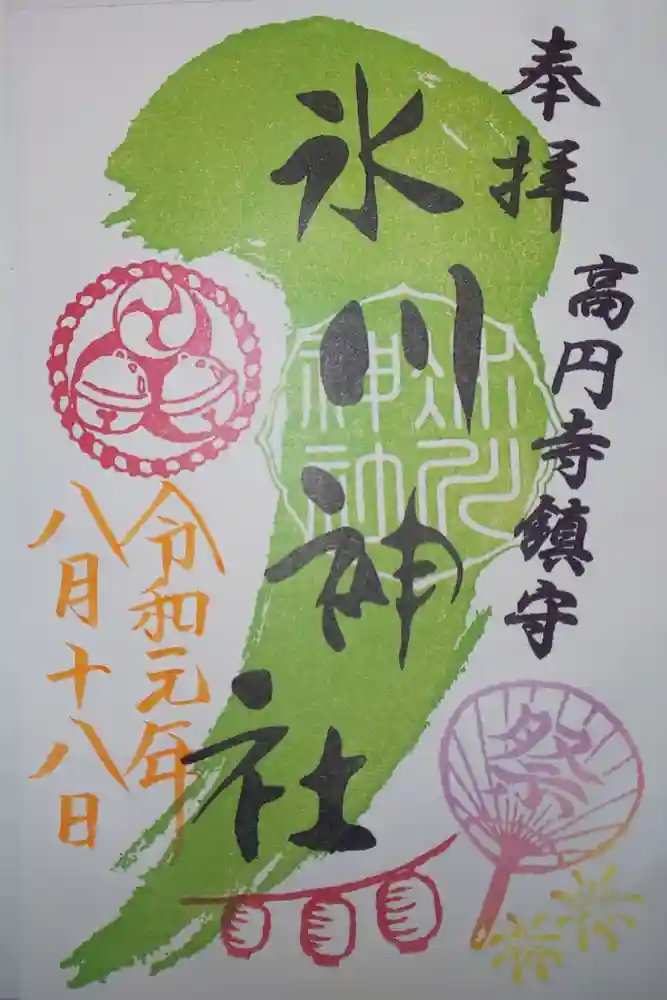 奉拝
高円寺鎮守
氷川神社
氷川神社
令和元年
八月十八日
祭